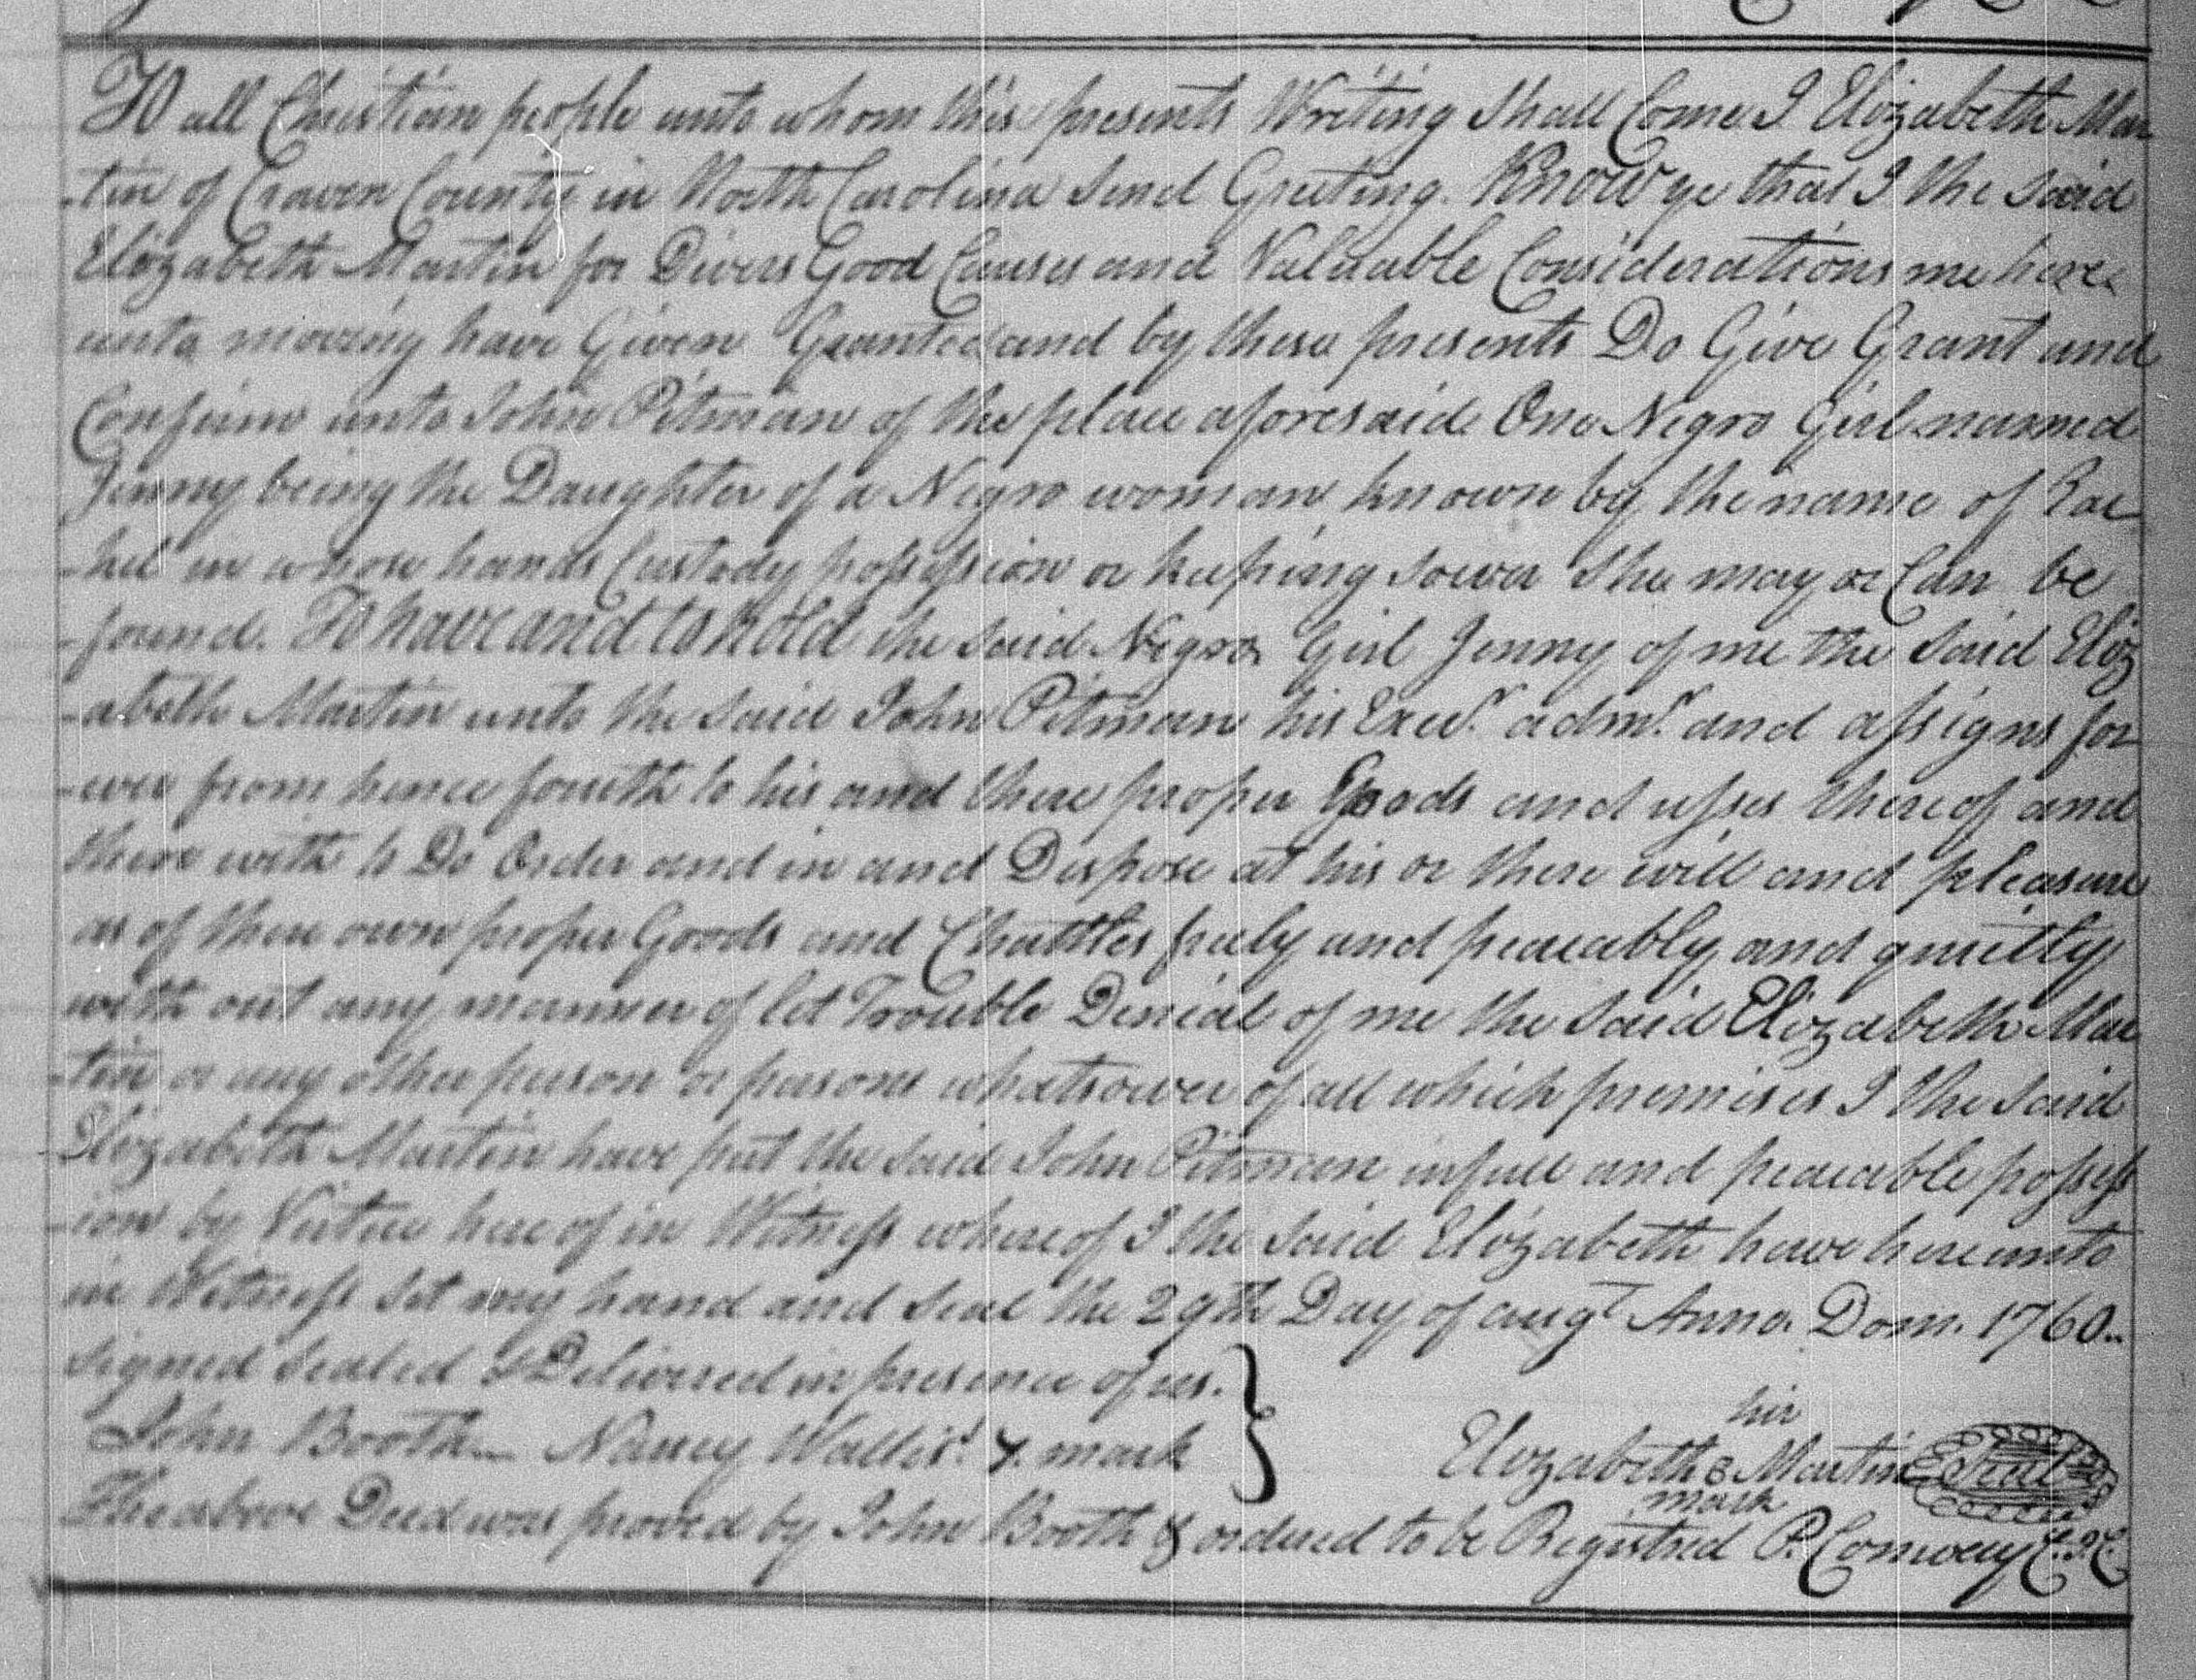 To all Christian people unto whom this presents Writing Shall Come I Elizabeth Mar
-tin of Craven County in North Carolina Send Greeting. Know ye that I the said
Elizabeth Martin for Divers Good Causes and Valuable Considerations me here
unto moving have Given Granted and by these presents Do Give Grant and
Confirm unto John Pitman of the place aforesaid One Negro Girl named
Jenny being the Daughter of a Negro woman known by the name of Rac
-hel in whose hands Custody possession or keeping soever She may or Can be
-found. To have and to hold the said Negro Girl Jenny of me the Said Eliz
-abeth Martin unto the said John Pitman his Exec.r adm.r and assigns for
-ever from hence fourth to his and there proper Goods and usses thereof and
there with to Do Order and in and Dispose at his or there will and pleasure
as of there own proper Goods and Chattles freely and peaceably and quietly
with out any manner of let Trouble Denial of me the said Elizabeth Mar
-tin or any other person or persons whatsoever of all which premises I the Said
Elizabeth Martin have put the said John Pitman in full and peaceable possess
-ion by Virtue here of in Witness whereof I the Said Elizabeth have hereunto
in Witness Set my hand and Seal the 29th Day of augt Anno. Dom. 1760..
Signed Sealed & Delivered in presence of us.
his
John Booth Nancy Wallis.s X mark
Elizabeth B Martin Seal
mark
The above Deed was proved by John Booth & ordered to be Registred P. Conway C.I.C.